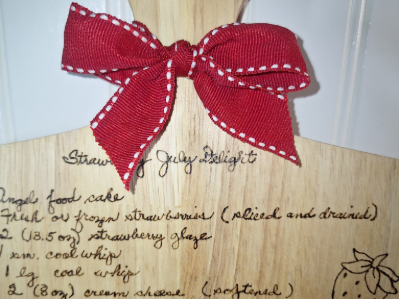 Straw y July Delight
Angel food cake
Fresh or frozen strawberries (sliced and drained)
2 (13.5 oz) strawberry glaze
1 sm. cool whip
1 lg cool whip
2 (8 oz) cream cheese (softened)